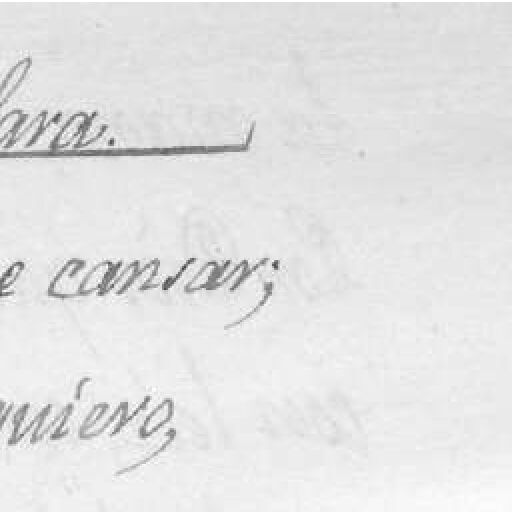 lara.
e cansar;
quiero,